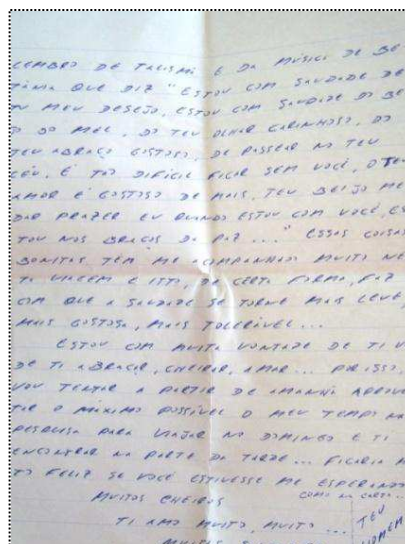 LEMBRO DE TALISMÃ E DA MÚSICA DE BE
TÂNIA QUE DIZ "ESTOU COM SAUDADE DE
TU MEU DESEJO, ESTOU COM SAUDADE DO BE
O DO MEL, DO TEU OLHAR CARINHOSO, DO
TEU ABRAÇO GOSTOSO, DE PASSEAR NO TEU
CÉU. É TÃO DIFÍCIL FICAR SEM VOCÊ, O TEU
AMOR É GOSTOSO DE MAIS, TEU BEIJO ME
DAR PRAZER EU QUANDO ESTOU COM VOCÊ, ES
TOU NOS BRAÇOS DA PAZ..." ESSAS COISAS
BONITAS TÊM ME ACOMPANHADO MUITO NES
TA VIAGEM E ISTO, DE CERTA FORMA, FAZ
COM QUE A SAUDADE SE TORNE MAIS LEVE,
MAIS GOSTOSA, MAIS TOLERÁVEL...
ESTOU COM MUITA VONTADE DE TI V
DE TI ABRAÇAR, CHEIRAR, AMAR... POR ISSO,
VOU TENTAR A PARTIR DE AMANHÃ APROVE
TAR O MÁXIMO POSSÍVEL O MEU TEMPO NA
PESQUISA PARA VIAJAR NO DOMINGO E TI
ENCONTRAR NA PARTE DA TARDE... FICARIA M
TO FELIZ SE VOCÊ ESTIVESSE ME ESPERANDO
MUITOS CHEIROS COMO NA CARTA...
TI AMO MUITO, MUITO... TEU
HOMEM
MUITOS